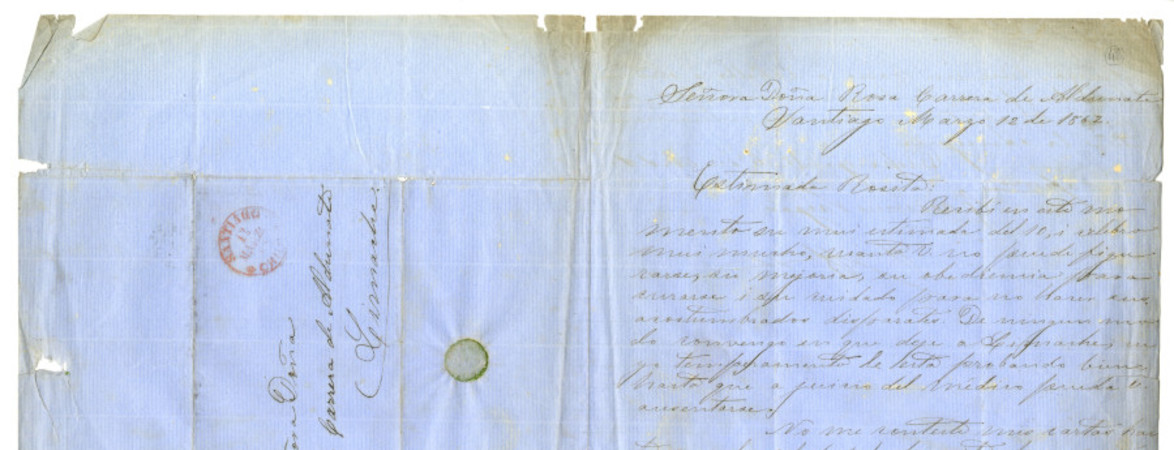 Señora Doña Rosa Carrera de Aldunate
Santiago Marzo 12 de 1862.
Estimada Rosita:
Recibí en este mo-
mento su mui estimada del 10, i celebro
mui mucho, cuanto U. no puede figu-
rarse, su mejoria, su obediencia para
curarse i su cuidado para no hacer sus
acostumbrados disparates. De ningun mo-
do convengo en que deje a Limache, cu-
yo temperamento le está probando bien,
hasta que a juicio del médico pueda U.
ausentarse.
No me conteste mis cartas
SANTIAGO
CHILE
Doña
Carrera de Aldunate
Limache